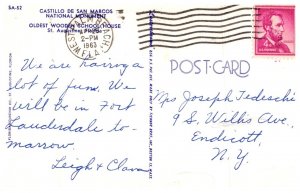 SA-52
CASTILLO DE SAN MARCOS
NATIONAL MONUMENT
OLDEST WOODEN SCHOOL HOUSE
St. Augustine, Florida
WEST PALM BEACH
2-PM
1963
FLA.
We are having a
lot of fun. We
will be in Fort
Lauderdale to-
marrow.
Leigh & Clara
POST-CARD
4¢
Mrs Joseph Tedeschi
9 S. Willis Ave.
Endicott
N. Y.